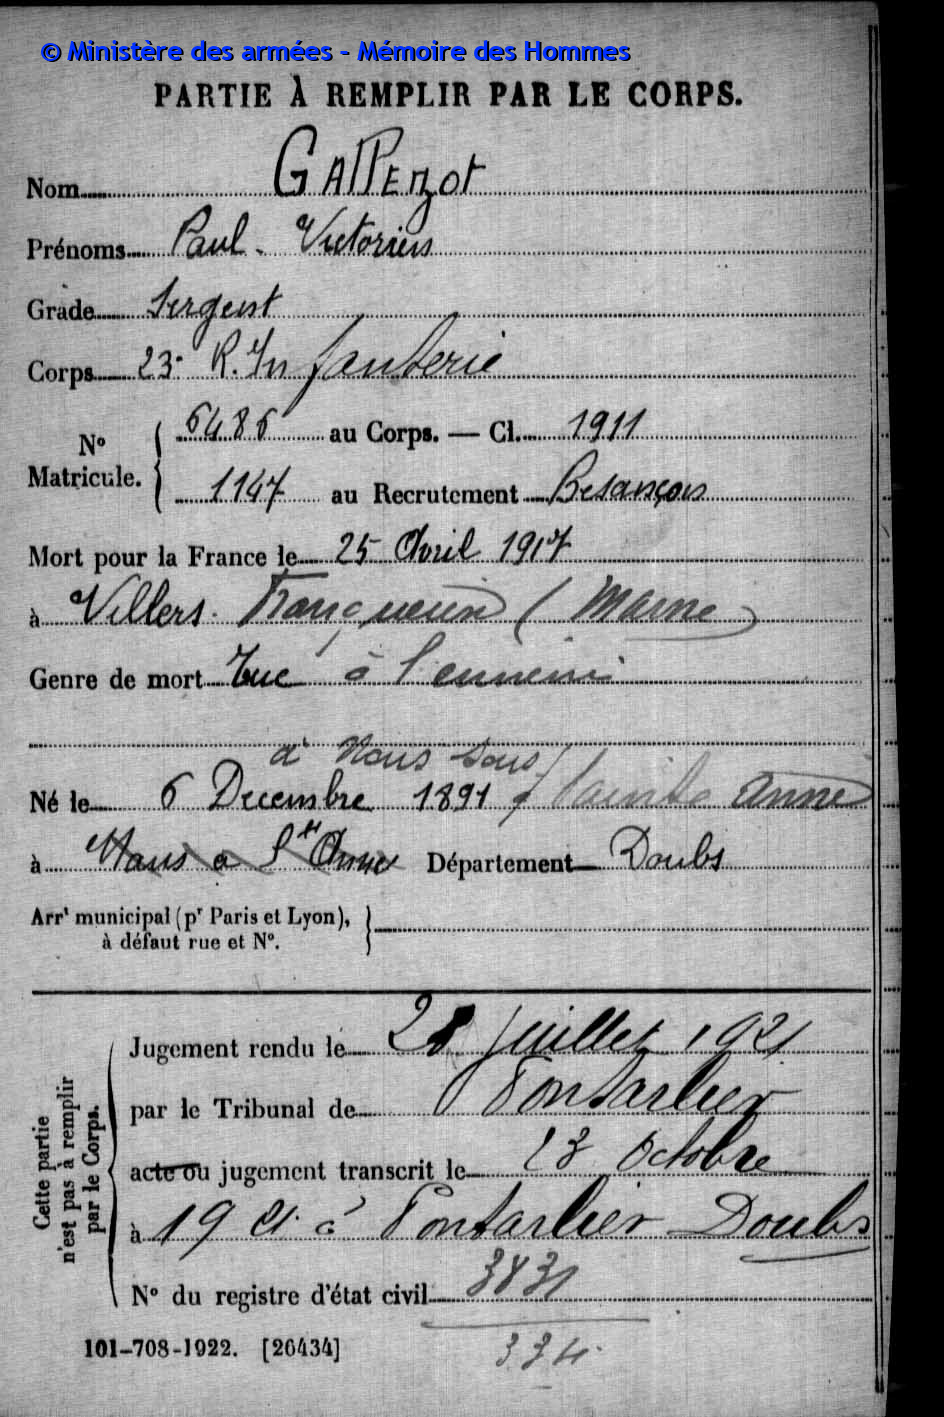 © Ministère des armées - Mémoire des Hommes
PARTIE À REMPLIR PAR LE CORPS.
Nom
Prénoms Paul - Victorien
Grade Sergent
Corps 23e R. Infanterie
N° Matricule. 6486 au Corps. — Cl. 1911
1147 au Recrutement Besançon
Mort pour la France le 25 Avril 1917
à Villers-Franqueux (Marne)
Genre de mort Tué à l'ennemi
à Nans sous Sainte Anne
Né le 6 Decembre 1891
à Nans à Ste Anne Département Doubs
Arrt municipal (pr Paris et Lyon),
à défaut rue et N°.
Cette partie n'est pas à remplir par le Corps.
Jugement rendu le 28 Juillet 1921
par le Tribunal de Pontarlier
acte ou jugement transcrit le 23 Octobre
à 1921 à Pontarlier Doubs
N° du registre d'état civil 3831
334
101-708-1922. [26434]